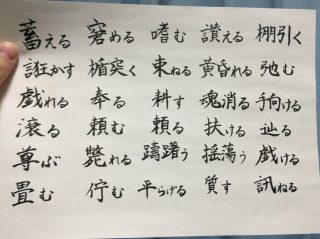 蓄える 窘める 嗜む 讃える 棚引く
誑かす 楯突く 束ねる 黄昏れる 弛む
戯れる 奉る 耕す 魂消る 手向ける
滾る 頼む 頼る 扶ける 辿る
尊ぶ 斃れる 躊躇う 揺蕩う 戯ける
畳む 佇む 平らげる 質す 訊ねる